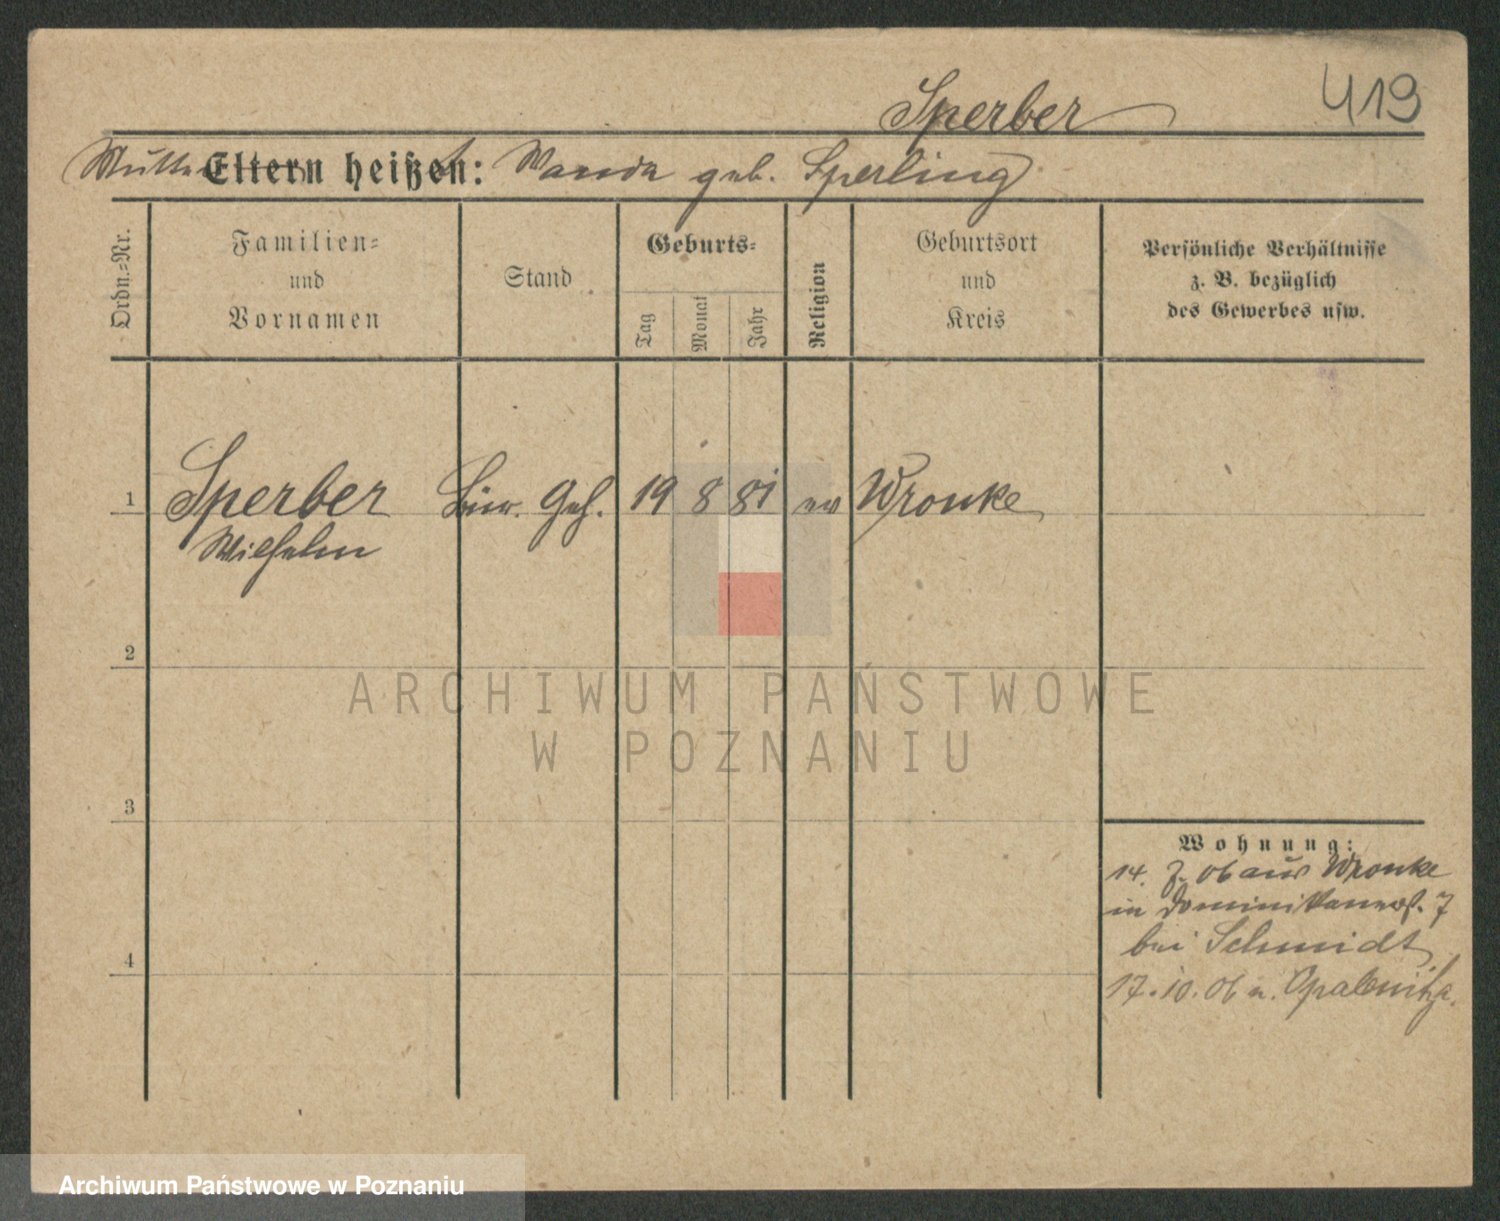 Sperber
419
Mutter Eltern heißen: Wanda geb. Sperling
Ordn.-Nr.
Familien-
und
Vornamen
Stand
Geburts-
Tag
Monat
Jahr
Religion
Geburtsort
und
Kreis
Persönliche Verhältnisse
z. B. bezüglich
des Gewerbes usw.
1 Sperber Bür. Geh. 19 8 81 ev Wronke
Wilhelm
2
ARCHIWUM PAŃSTWOWE
W POZNANIU
3
Wohnung:
14. 06 aus Wronke
in Dominikanerst. 7
bei Schmidt
4
17.10.06 n. Opalenitza.
Archiwum Państwowe w Poznaniu